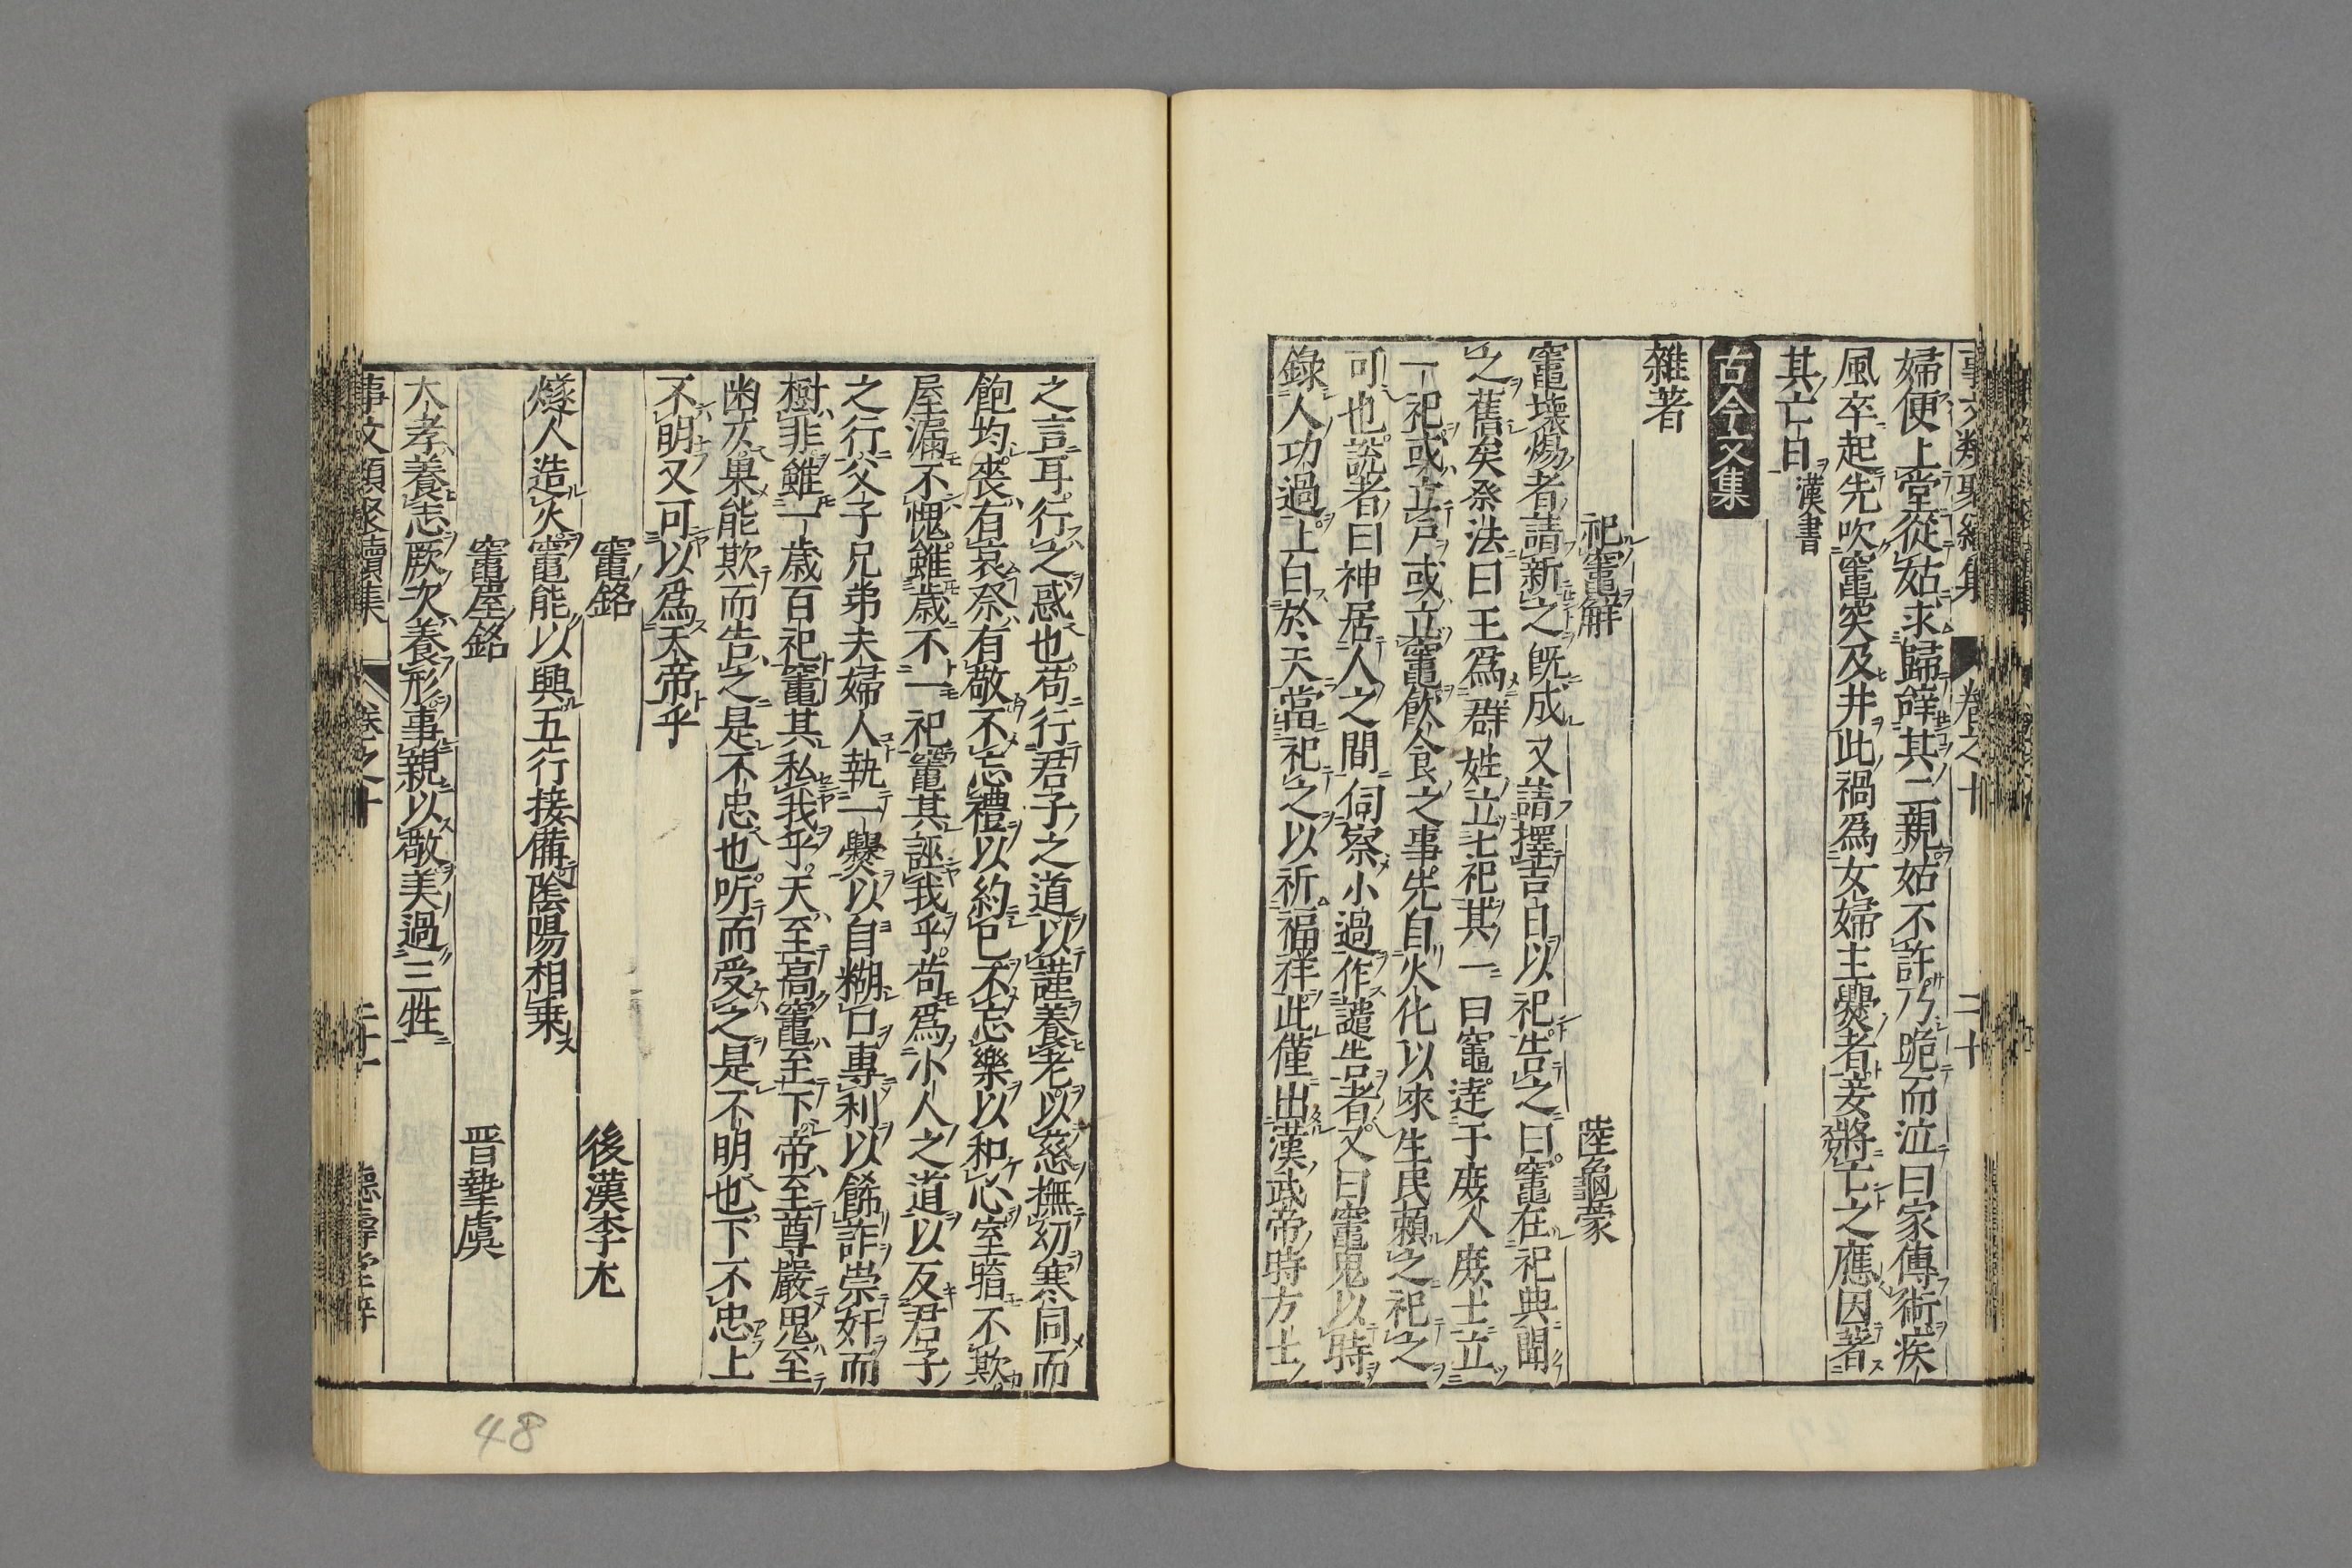 事文類聚續集 卷之十 二十
婦便上堂從姑求歸辭其二親姑不許乃跪而泣曰家傳術疾
風卒起先吹竈突及井此禍爲女婦主爨者妾將亡之應因著
其亡日漢書
古今文集
雜著
祀竈解 陸龜蒙
竈壞煬者請新之既成又請擇吉日以祀告之曰竈在祀典聞
之舊矣祭法曰王爲群姓立七祀其一曰竈達于庶人庶士立
一祀或立戸或立竈飮食之事先自火化以來生民頼之祀之
可也說者曰神居人之間伺察小過作譴告者又曰竈鬼以時
錄人功過上白於天當祀之以祈福祥此僅出漢武帝時方士
之言耳行之惑也苟行君子之道以謹養老以慈撫幼寒同而
飽均喪有哀祭有敬不忘禮以約已不忘樂以和心室暗不欺
屋漏不愧雖歳不一祀竈其誣我乎苟爲小人之道以反君子
之行父子兄弟夫婦人執一爨以自糊口專利以餙詐崇奸而
樹非雖一歳百祀竈其私我乎天至高竈至下帝至尊嚴鬼至
幽仄果能欺而告之是不忠也听而受之是不明也下不忠上
不明又可以爲天帝乎
竈銘 後漢李尤
燧人造火竈能以興五行接備陰陽相乗
竈屋銘 晋摯虞
大孝養志厥次養形事親以敬美過三牲
事文類聚續集 卷之十 二十一
48